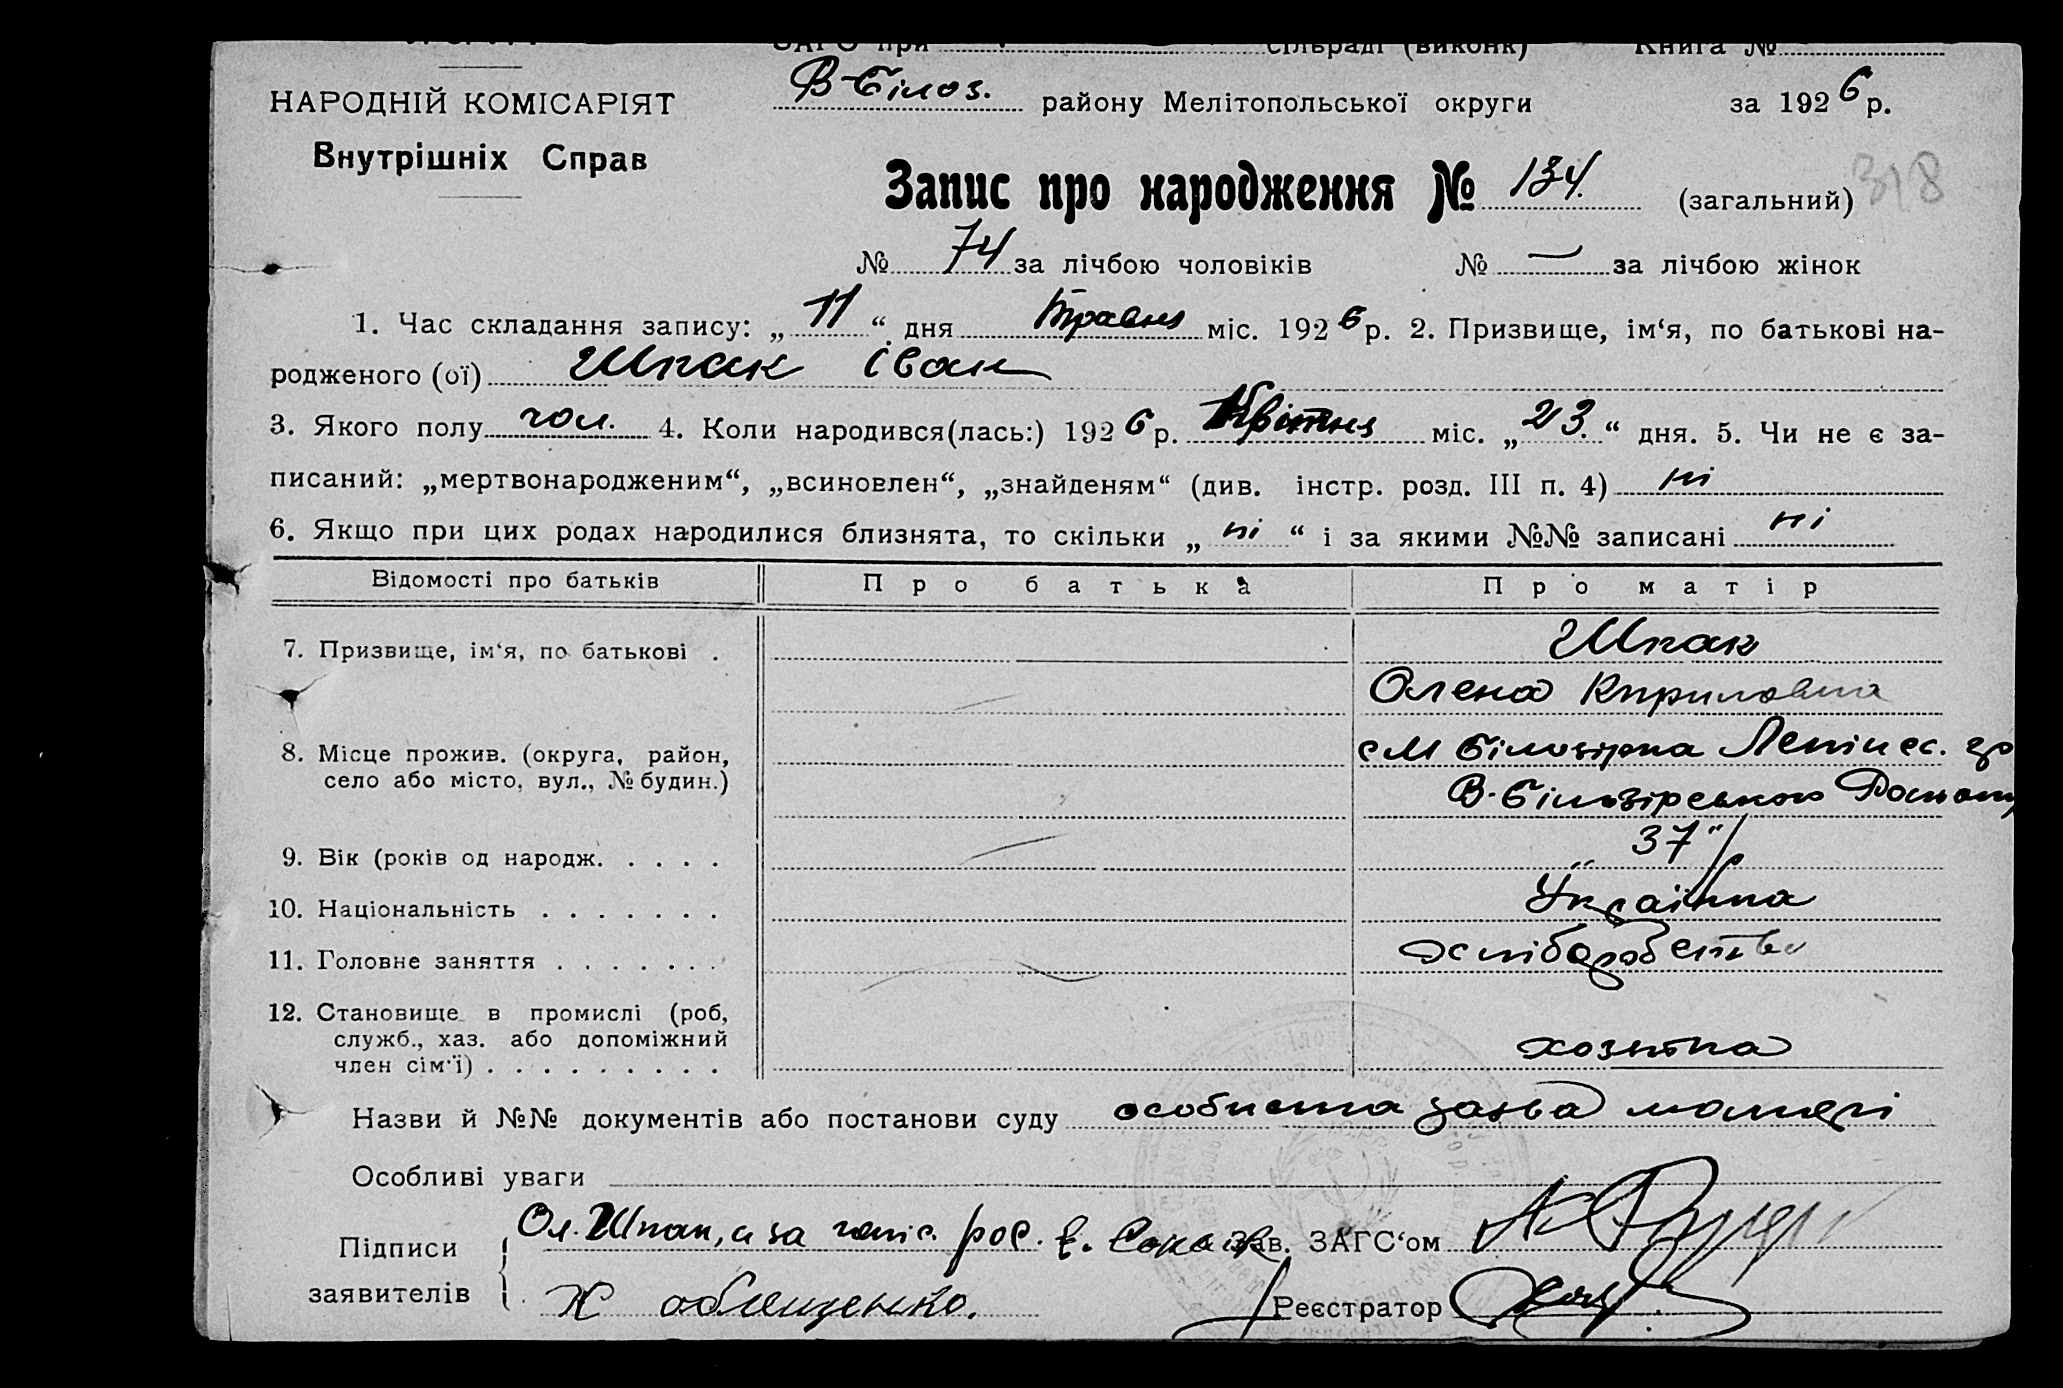 ЗАГС при сільраді (виконк) Книга №
НАРОДНІЙ КОМІСАРІЯТ
Внутрішніх Справ
В-Білоз. району Мелітопольської округи за 1926 р.
Запис про народження № 134. (загальний) 318
№ 74 за лічбою чоловіків № — за лічбою жінок
1. Час складання запису: „11“ дня травня міс. 1926 р. 2. Призвище, ім‘я, по батькові на-
родженого (ої) Шпак Іван
3. Якого полу чол. 4. Коли народився(лась:) 1926 р. Квітня міс. „23.“ дня. 5. Чи не є за-
писаний: „мертвонародженим“, „всиновлен“, „знайденям“ (див. інстр. розд. III п. 4) ні
6. Якщо при цих родах народилися близнята, то скільки „ні“ і за якими №№ записані ні
Відомості про батьків Про батька Про матір
7. Призвище, ім‘я, по батькові . Шпак
Олена Кириловна
8. Місце прожив. (округа, район, село або місто, вул., № будин.)
с М Білозірка
В-Білозірського
9. Вік (років од народж. . . . . 37
10. Національність . . . . . . . Українка
11. Головне заняття . . . . . . . хліборобство
12. Становище в промислі (роб,
служб., хаз. або допоміжний
член сім‘ї) . . . . . . . . . хозяйка
Назви й №№ документів або постанови суду особиста заява матері
Особливі уваги
Підписи
заявителів
Ол. Шпак, а за
Зав. ЗАГС‘ом
Реєстратор